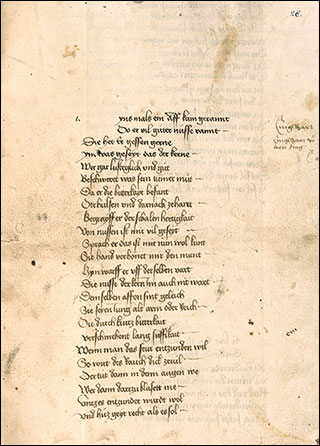 26.
i. yns mals ein Aff kam gerannt
Do er vil guter nusse vannt
Die het er gessen gerne
Im was geseyt das der kerne
Wer gar lustiglich und gut
Beschwerett was sein tumer mut
Da er die bitterkayt befant
Der hulsen und darnach zehant
Begraiff er der schalen hertigkait
Von nussen ist mir vil geseyt
Sprach er das ist mir nun wol kunt
Sie hand verhonet mir den munt
Hyn warff er uff der selben vart
Die nusse der kern im auch nit wart
Demselben affen sint gelich
Sie seyen iung alt arm oder reich
Die durch kurtz bitterkeit
Verschmehent lang sussikeit
Wenn man das feur entzunden wil
So wirt des rauch dick zevil
Der tut dann in dem augen we
Wer dann dartzu blaset me
Untzes entzundet wurdt wol
und hitz gept recht als es sol